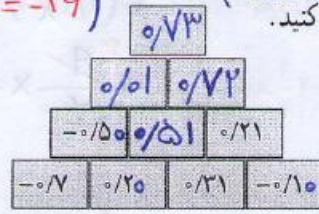 کنید.
۰/۷۳
۰/۰۱ ۰/۷۲
-۰/۵۰ ۰/۵۱ ۰/۲۱
-۰/۷ ۰/۲۰ ۰/۳۱ -۰/۱۰